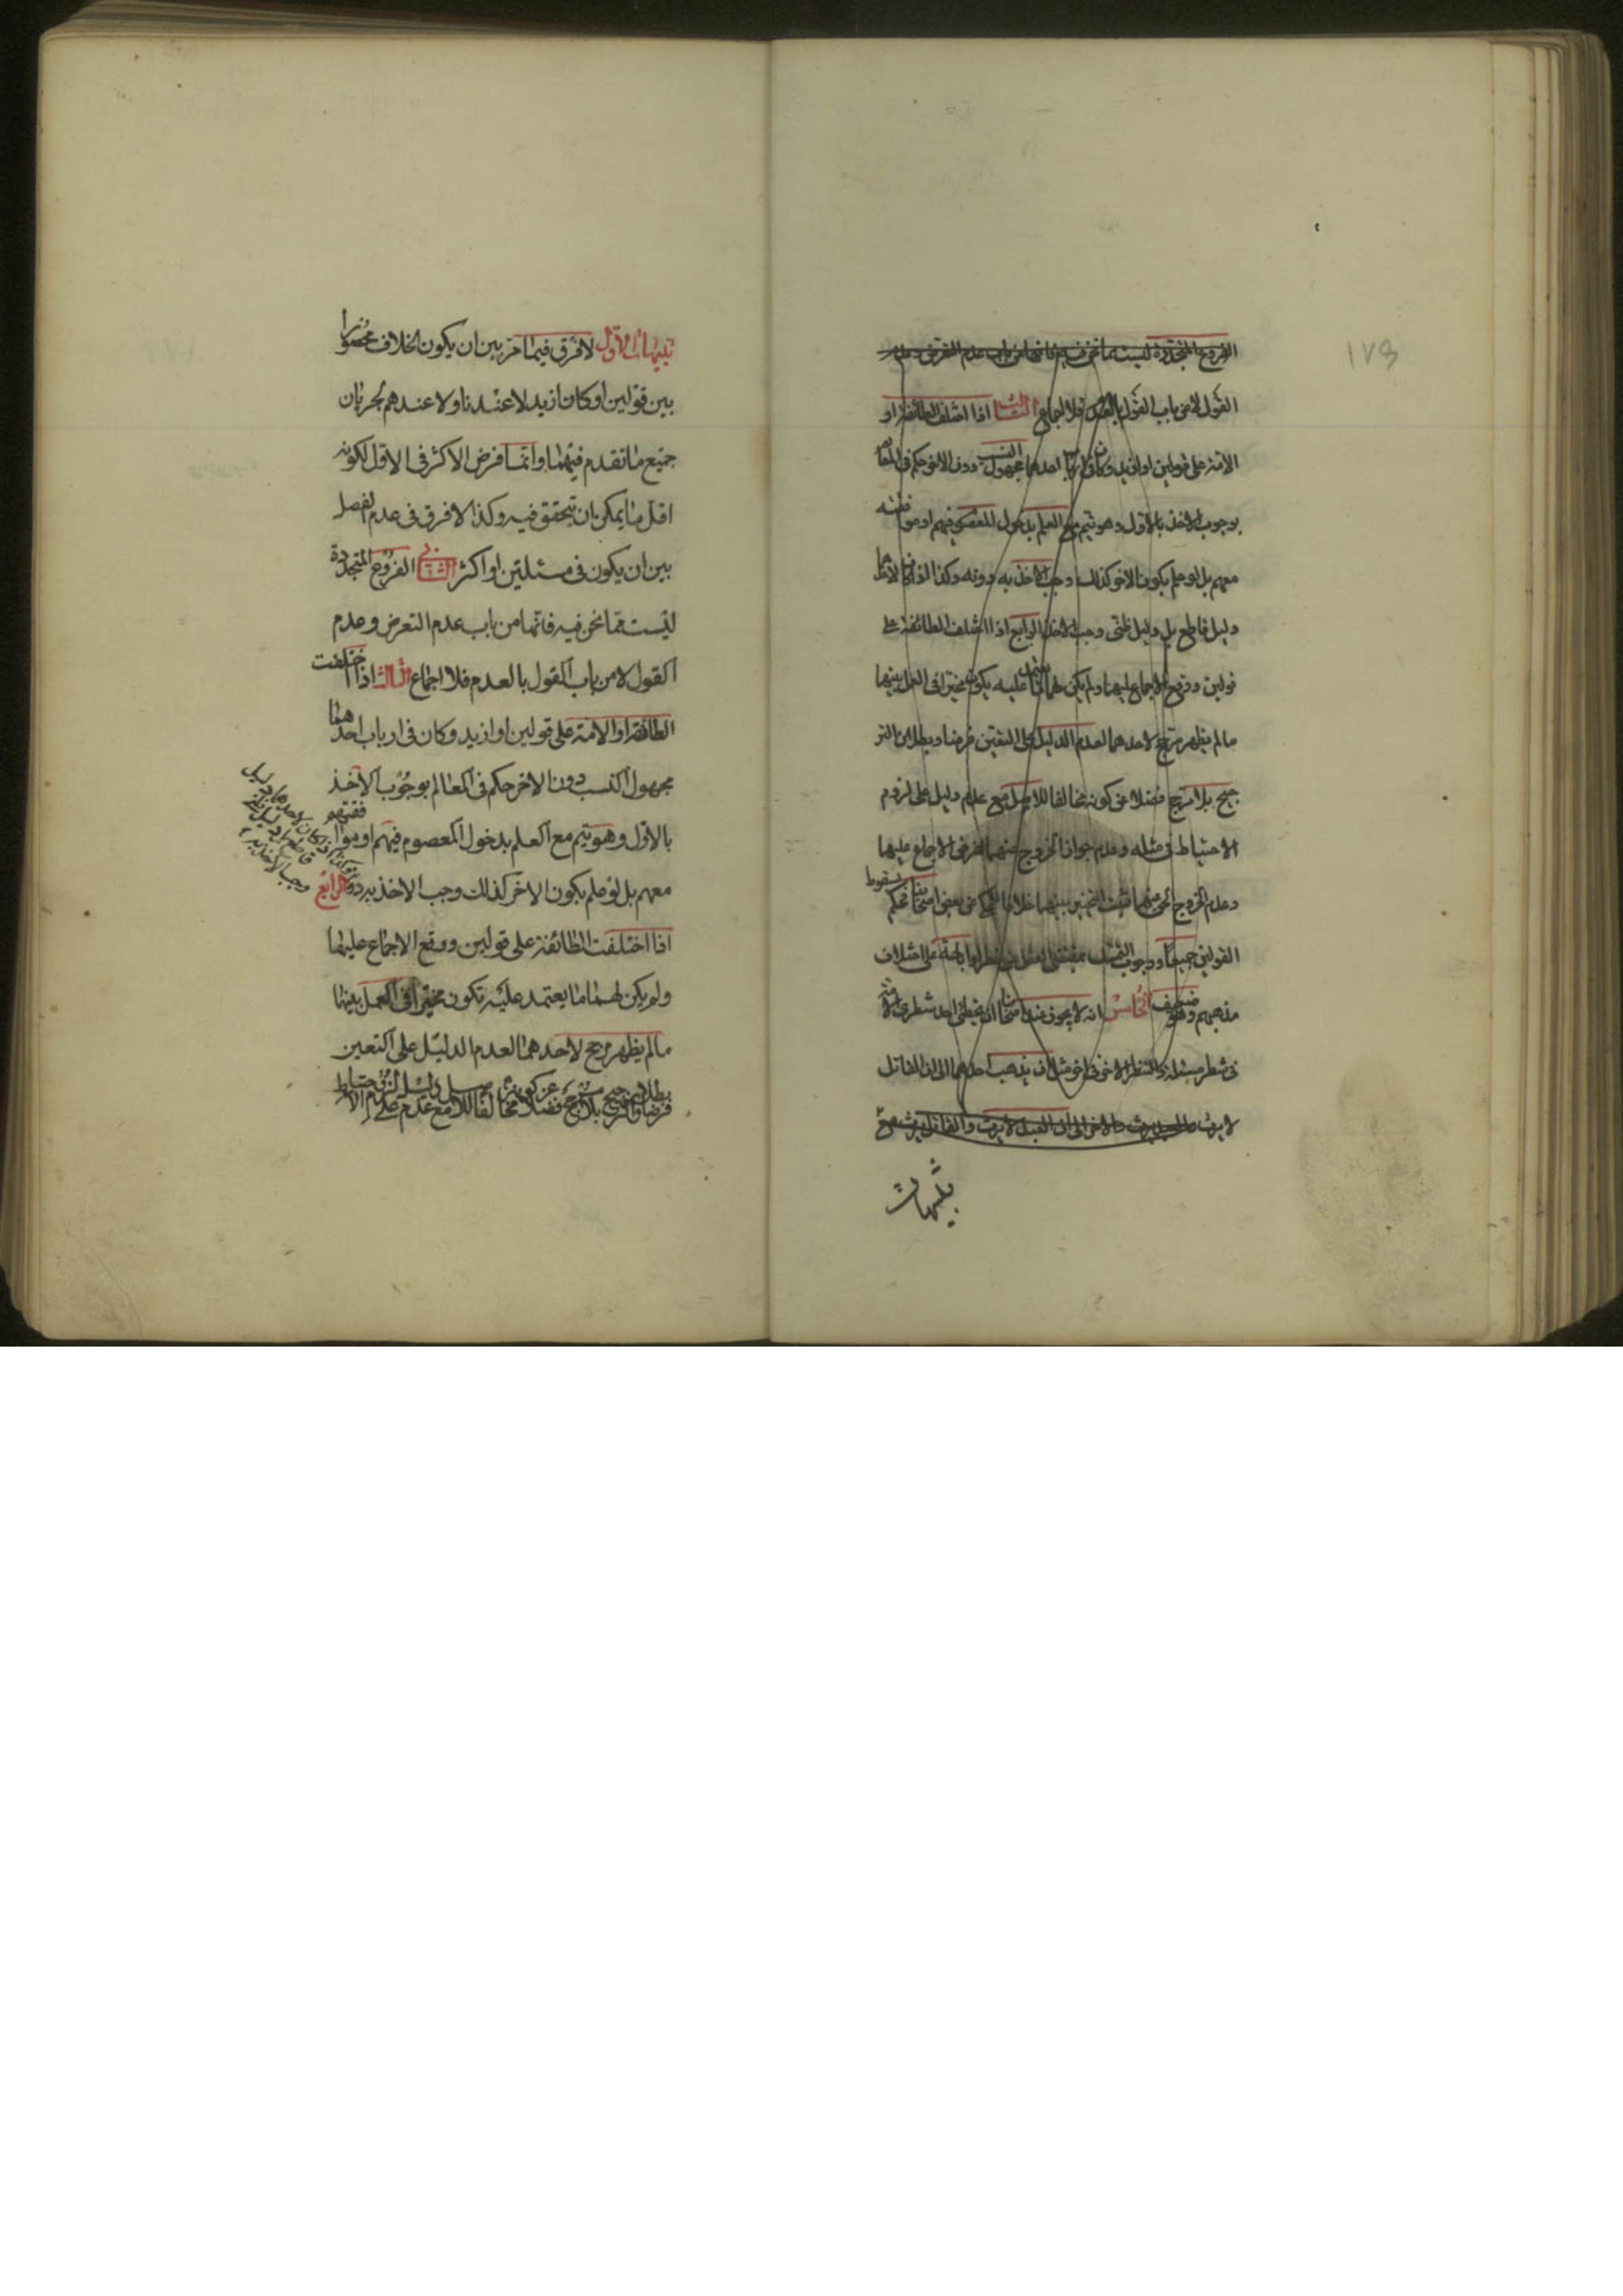 ١٧٩
الفروع المتجددة ليست مما نحن فيه فانها من باب عدم التعرض وعدم
القول لا من باب القول بالعدم فلا اجماع الثالث اذا اختلف الطائفة او
الامة على قولين او ازيد وكان في ارباب احدهما مجهول النسب دون الاخر حكم في المعالم
بوجوب الاخذ بالاول وهو يتم مع العلم بدخول المعصوم فيهم او موافقته
معهم بل لو علم بكون الاخر كذلك وجب الاخذ به دونه وكذا اذا كان لاحدهما
دليل قاطع بل دليل ظني وجب الاخذ الرابع اذا اختلف الطائفة على
قولين ووقع الاجماع عليهما ولم يكن لهما ما يعتمد عليه يكون مخيرا في العمل بينهما
ما لم يظهر مرجح لاحدهما لعدم الدليل على التعين فرضا وبطلان التر
جيح بلا مرجح فضلا عن كونه مخالفا للاصل مع عدم دليل على لزوم
الاحتياط في مثله وعدم جواز الخروج عنهما لفرض الاجماع عليهما
وعدم الخروج عنهما فثبت التخيير بينهما خلافا للمحكي عن بعض اصحابنا فحكم بسقوط
القولين جميعا ووجوب التمسك بمقتضى العقل من حظر او اباحة على اختلاف
مذهبهم وهو ضعيف الخامس انه لا يجوز عندنا ان يخطئ احد شطري الامة
في شطر مسئلة والشطر الاخر في اخر مثل ان يذهب احدهما الى ان القاتل
لا يرث والعبد يرث والاخر الى ان العبد لا يرث والقاتل يرث
تنبيهات
تنبيهات الاول لا فرق فيما مر بين ان يكون الخلاف محصورا
بين قولين او كان ازيد لا عندنا ولا عندهم لجريان
جميع ما تقدم فيهما وانما فرض الاكثر في الاقل لكونه
اقل ما يمكن ان يتحقق فيه وكذا لا فرق في عدم الفصل
بين ان يكون في مسئلتين او اكثر الثاني الفروع المتجددة
ليست مما نحن فيه فانها من باب عدم التعرض وعدم
القول لا من باب القول بالعدم فلا اجماع الثالث اذا اختلفت
الطائفة او الامة على قولين او ازيد وكان في ارباب احدهما
مجهول النسب دون الاخر حكم في المعالم بوجوب الاخذ
بالاول وهو يتم مع العلم بدخول المعصوم فيهم او موافقتهم
معهم بل لو علم بكون الاخر كذلك وجب الاخذ به دونه الرابع
وكذا اذا كان لاحدهما دليل
قاطع بل دليل ظني
وجب الاخذ به
اذا اختلفت الطائفة على قولين ووقع الاجماع عليهما
ولم يكن لهما ما يعتمد عليه تكون مخيرا في العمل بينهما
ما لم يظهر مرجح لاحدهما لعدم الدليل على التعين
فرضا وبطلان الترجيح بلا مرجح فضلا عن كونه مخالفا للاصل مع عدم دليل على لزوم الاحتياط